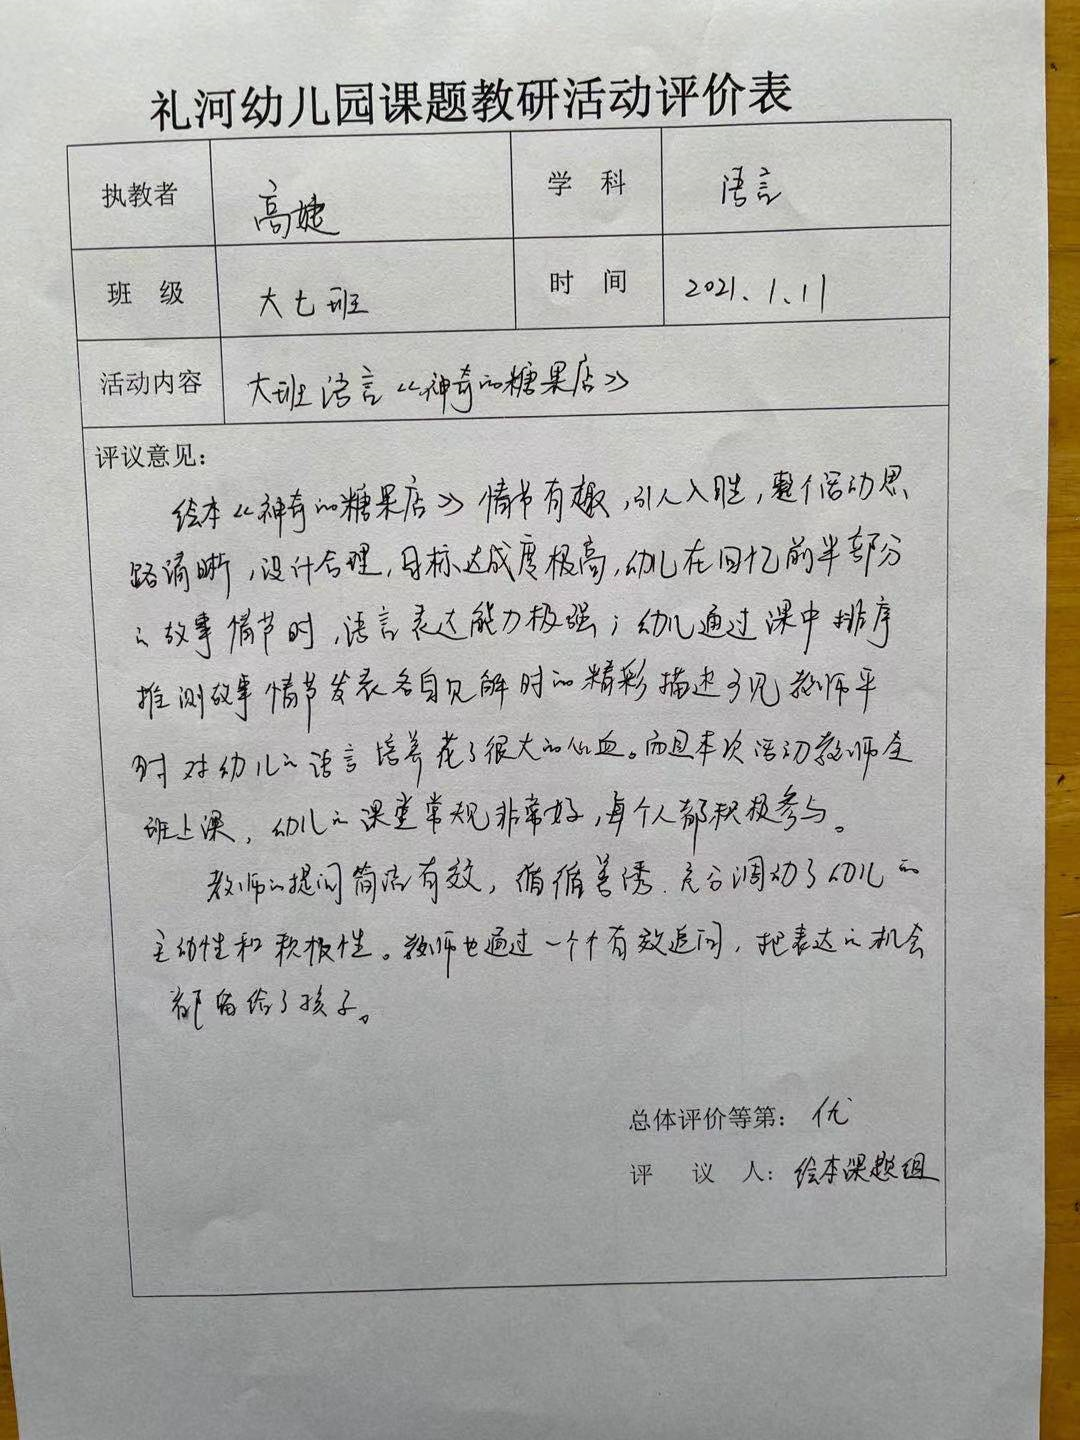 礼河幼儿园课题教研活动评价表
执教者 高婕 学 科 语言
班 级 大七班 时 间 2021.1.11
活动内容 大班语言《神奇的糖果店》
评议意见：
绘本《神奇的糖果店》情节有趣，引人入胜，整个活动思
路清晰，设计合理，目标达成度极高，幼儿在回忆前半部分
的故事情节时，语言表达能力极强；幼儿通过课中排序
推测故事情节发表各自见解时的精彩描述可见教师平
时对幼儿的语言培养花了很大的心血。而且本次活动教师全
班上课，幼儿的课堂常规非常好，每个人都积极参与。
教师的提问简洁有效，循循善诱.充分调动了幼儿的
主动性和积极性。教师也通过一个个有效追问，把表达的机会
都留给了孩子。
总体评价等第：优
评 议 人：绘本课题组